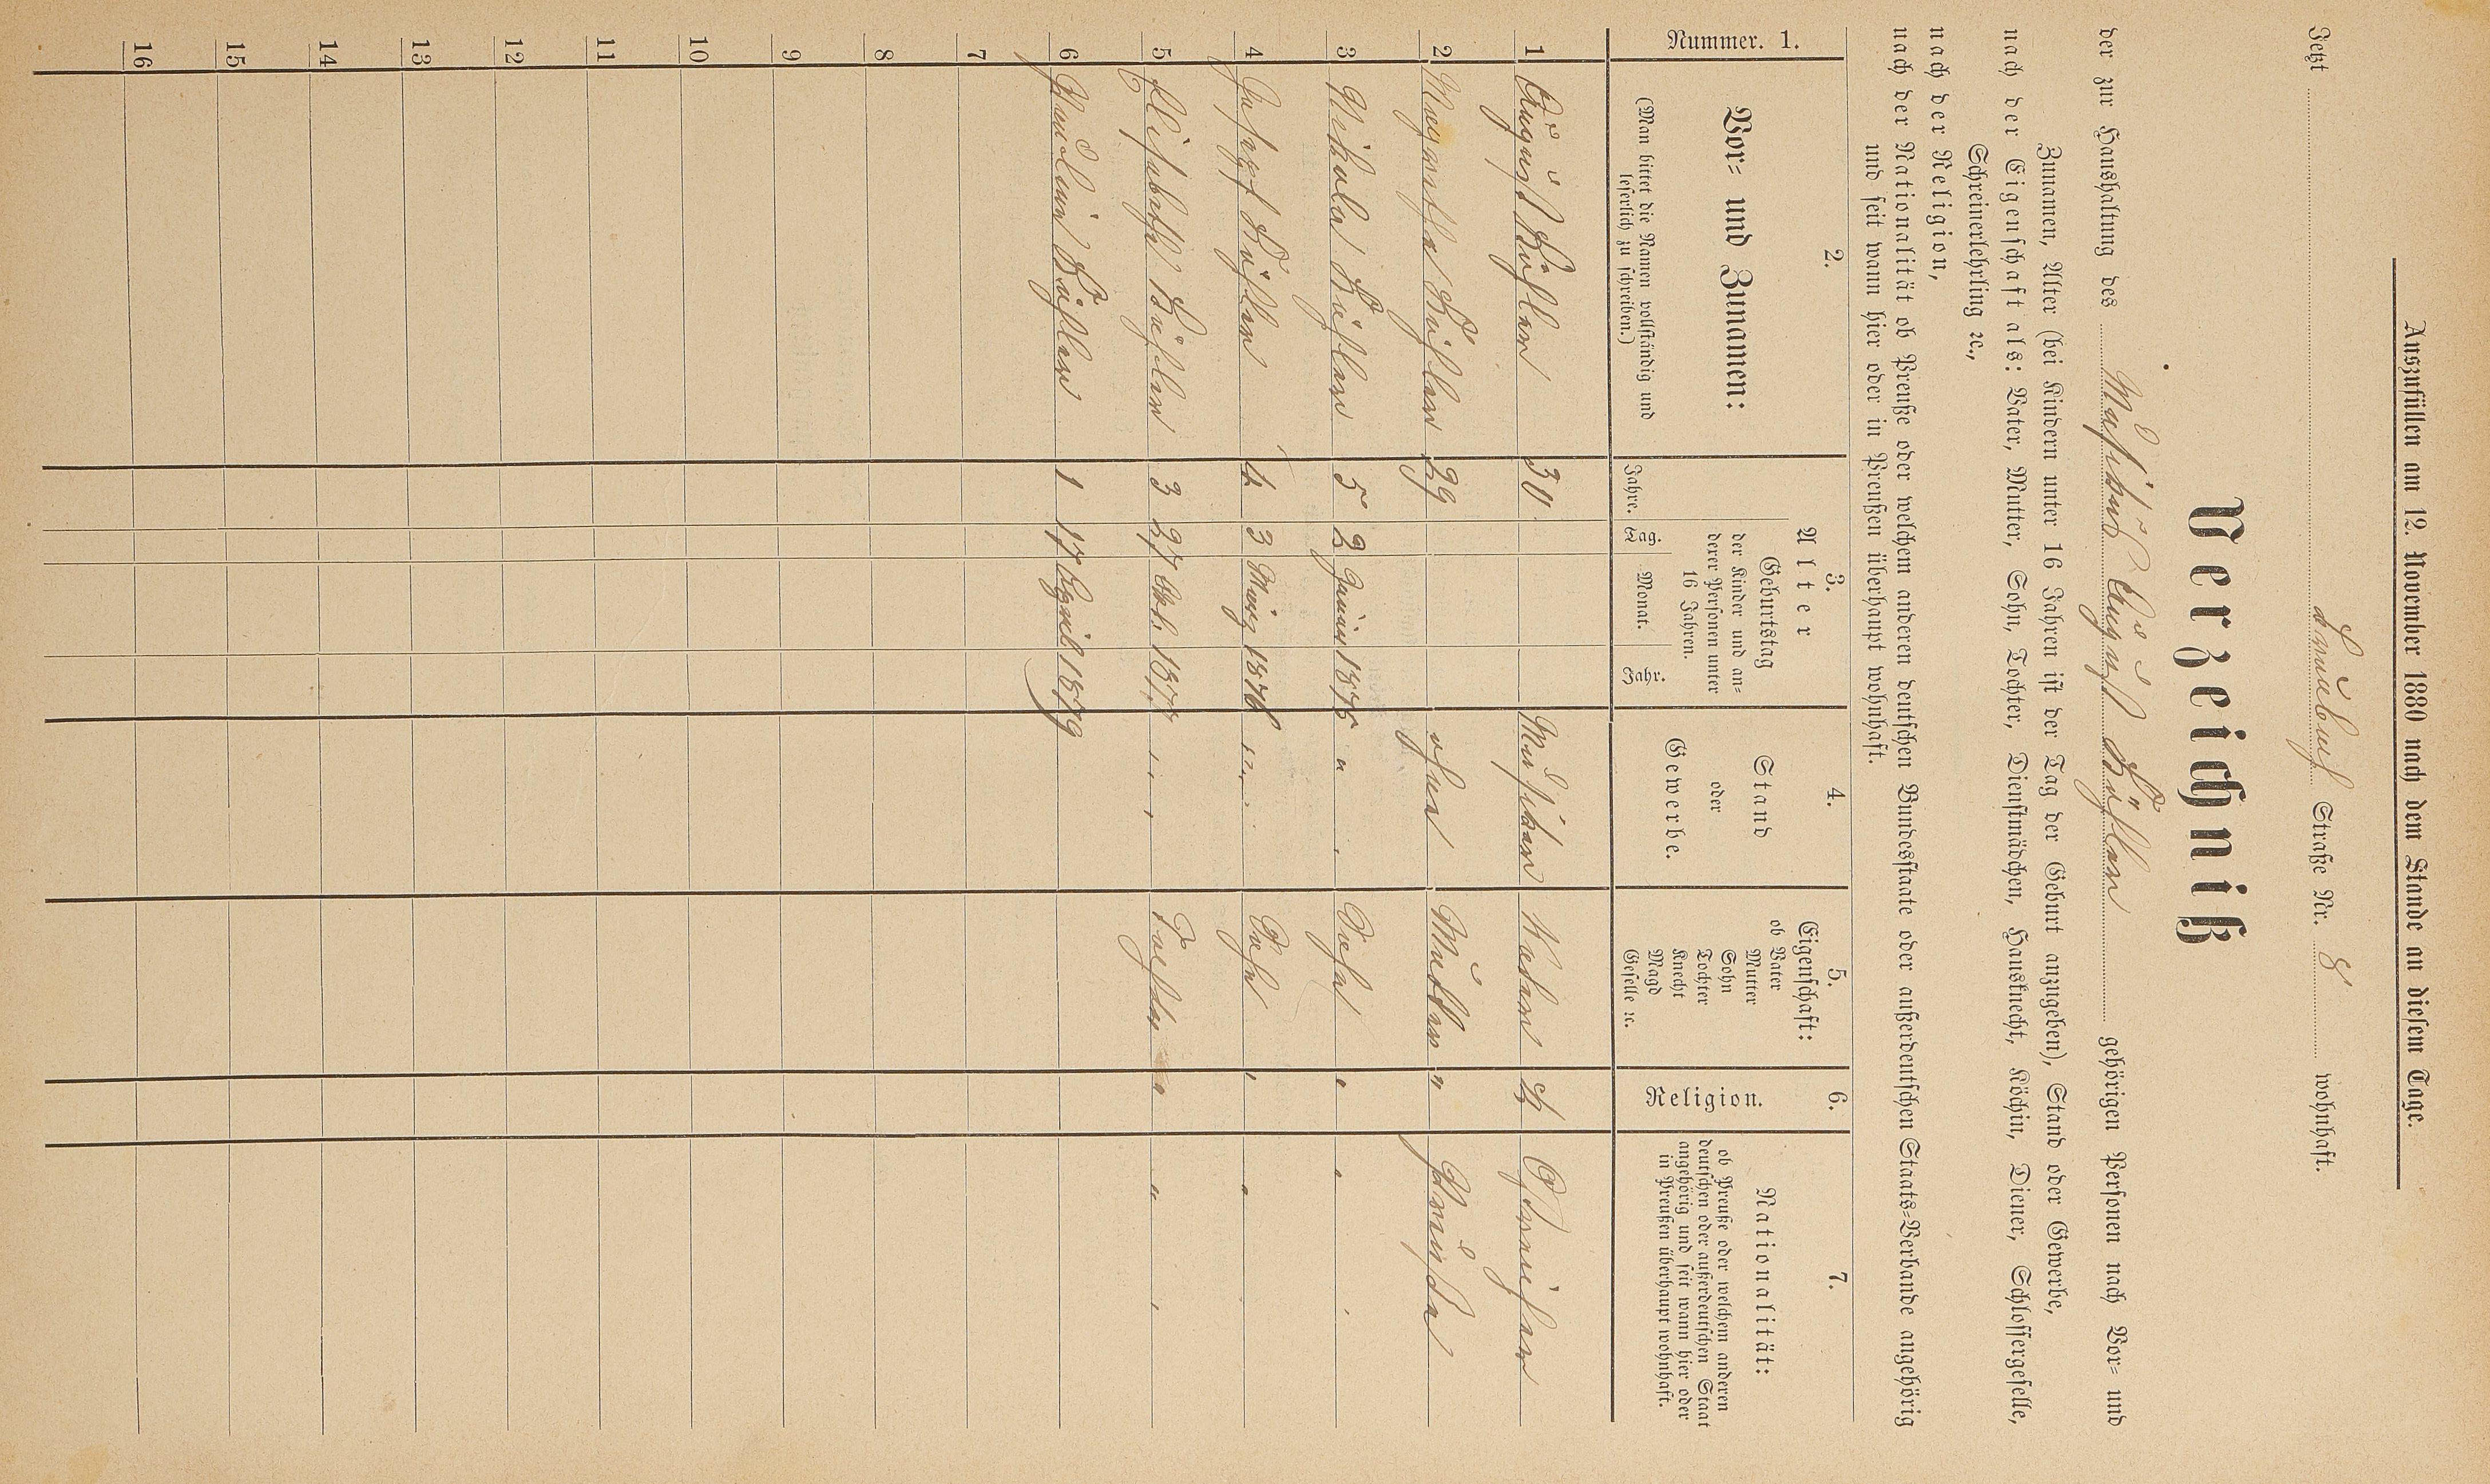 Auszufüllen am 12. November 1880 nach dem Stande an diesem Tage.
Jetzt Straße Nr. 8 wohnhaft.
Verzeichniß
der zur Haushaltung des Musikus August gehörigen Personen nach Vor= und
Zunamen, Alter (bei Kindern unter 16 Jahren ist der Tag der Geburt anzugeben), Stand oder Gewerbe,
nach der Eigenschaft als: Vater, Mutter, Sohn, Tochter, Dienstmädchen, Hausknecht, Köchin, Diener, Schlossergeselle,
Schreinerlehrling ꝛc.,
nach der Religion,
nach der Nationalität ob Preuße oder welchem anderen deutschen Bundesstaate oder außerdeutschen Staats=Verbande angehörig
und seit wann hier oder in Preußen überhaupt wohnhaft.
Nummer. 1.
2.
Vor= und Zunamen:
(Man bittet die Namen vollständig und
leserlich zu schreiben.)
3.
Alter
Jahre.
Geburtstag
der Kinder und an=
derer Personen unter
16 Jahren.
Tag. Monat. Jahr.
4.
Stand
oder
Gewerbe.
5.
Eigenschaft:
ob Vater
Mutter
Sohn
Tochter
Knecht
Magd
Geselle ꝛc.
6.
Religion.
7.
Nationalität:
ob Preuße oder welchem anderen
deutschen oder außerdeutschen Staat
angehörig und seit wann hier oder
in Preußen überhaupt wohnhaft.
1 August 30 Musiker Vater
2 29 ohne Mutter "
3 5 2 Januar 1875 " Sohn "
4 Joseph 4 3 März 1876 " Sohn "
5 Elisabeth 3 27 1877 " Tochter " "
6 1 17 April 1879
7
8
9
10
11
12
13
14
15
16